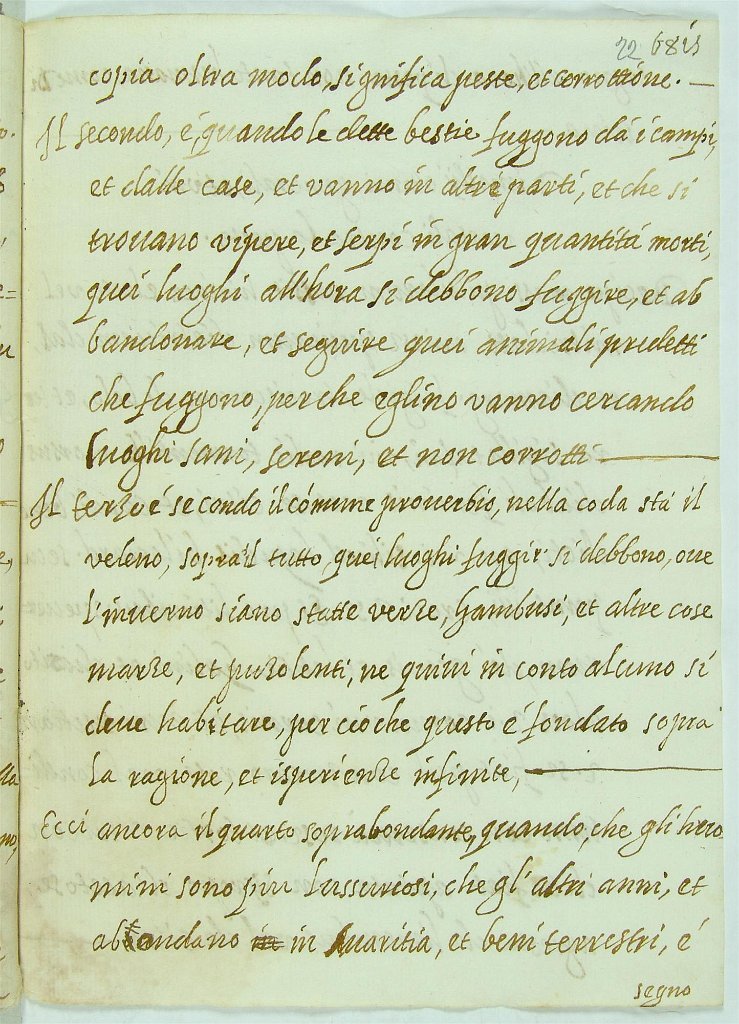 22 68is
copia oltra modo, significa peste, et corrottione. —
Il secondo, é, quando le dette bestie fuggono dá i campi,
et dalle case, et vanno in altre parti, et che si
trouano vipere, et serpi in gran quantitá morti,
quei luoghi allhora si debbono fuggire, et ab
bandonare, et seguire quei animali predetti
che fuggono, perche eglino vanno cercando
luoghi sani, sereni, et non corrotti —
Il terzo é secondo il cómune prouerbio, nella coda stá il
veleno, sopra'l tutto, quei luoghi fuggir si debbono, oue
l'inuerno siano state verze, gambusi, et altre cose
marze, et puzolenti, ne quiui in conto alcuno si
deue habitare, per cioche questo é fondato sopra
la ragione, et isperienze infinite, —
Ecci ancora il quarto soprabondante, quando, che gli huo
mini sono piu lussuriosi, che gl'altri anni, et
abbondano in in Auaritia, et beni terrestri, é
segno